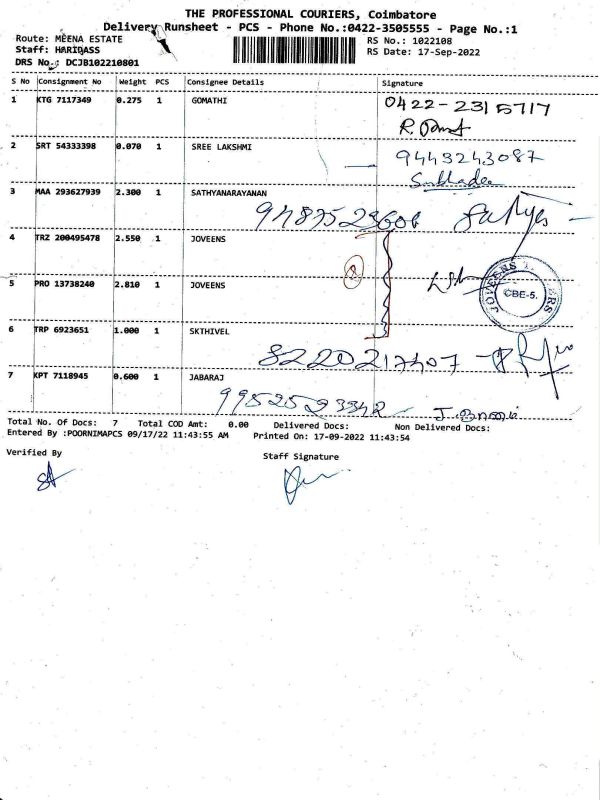 THE PROFESSIONAL COURIERS, Coimbatore
Delivery Runsheet - PCS - Phone No.:0422-3505555 - Page No.:1
Route: MEENA ESTATE
RS No.: 1022108
Staff: HARIDASS
RS Date: 17-Sep-2022
DRS No.: DCJB102210801
S No Consignment No Weight PCS Consignee Details Signature
1 KTG 7117349 0.275 1 GOMATHI 0422-2315717
2 SRT 54333398 0.070 1 SREE LAKSHMI 9443243087
3 MAA 293627939 2.300 1 SATHYANARAYANAN
4 TRZ 200495478 2.550 1 JOVEENS
5 PRO 13738240 2.810 1 JOVEENS CBE-5.
6 TRP 6923651 1.000 1 SKTHIVEL
8220217407
7 KPT 7118945 0.600 1 JABARAJ
Total No. Of Docs: 7 Total COD Amt: 0.00 Delivered Docs: Non Delivered Docs:
Entered By :POORNIMAPCS 09/17/22 11:43:55 AM Printed On: 17-09-2022 11:43:54
Verified By
Staff Signature